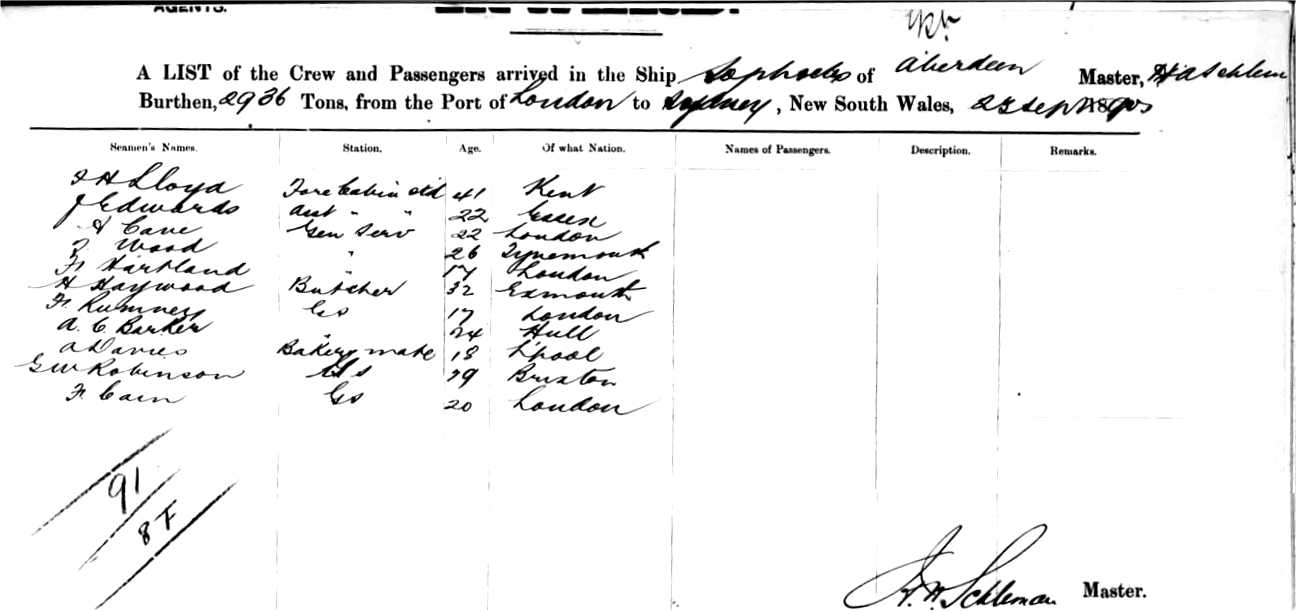 AGENTS.
A LIST of the Crew and Passengers arrived in the Ship Sophocles of Aberdeen Master, H A Schlem
Burthen, 2936 Tons, from the Port of London to Sydney, New South Wales, 23 Sept 18
Seamen's Names. Station. Age. Of what Nation. Names of Passengers. Description. Remarks.
H Lloyd Fore Cabin std 41 Kent
J Edwards asst " " 22 Essex
H Cave Gen Serv 22 London
Wood " 26 Tynemouth
Fr Harkland " 17 London
H Haywood Butcher 32 Exmouth
Fr Rumney Gs 17 London
A. C. Barker " 24 Hull
A Davies Bakers mate 18 L'pool
G W Robinson Gs 29 Brixton
Fr Cain Gs 20 London
91
8 F
Schleman Master.